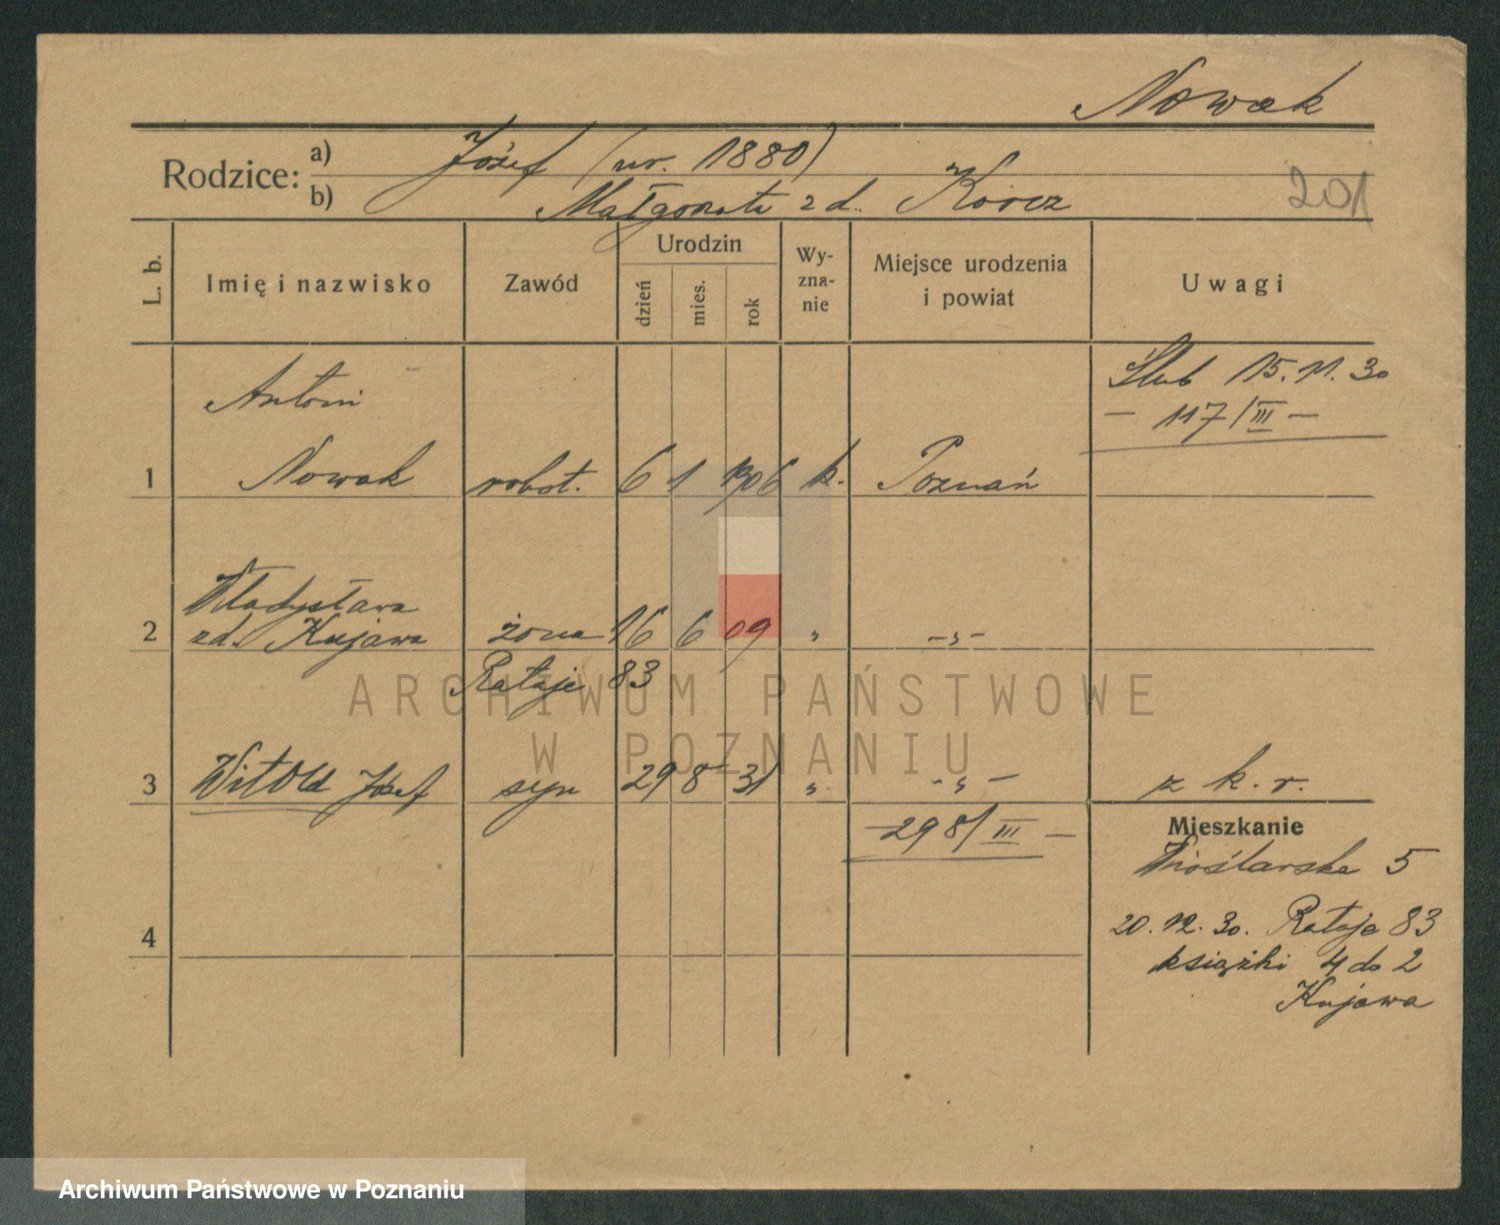 Nowak
Rodzice: a) Józef (ur. 1880)
b) Małgorzata z d. Korcz
201
L. b. Imię i nazwisko Zawód Urodzin dzień mies. rok Wyznanie Miejsce urodzenia i powiat Uwagi
Antoni Ślub 15. 11. 30
— 117/III —
1 Nowak robot. 6 1 1906 k. Poznań
Władysława
2 zd. Kujawa żona 16 6 09 „ -„-
Rataje 83
3 Witold Józef syn 29 8 31 „ -„- z k. r.
— 298/III —
Mieszkanie
Wioślarska 5
4 20. 12. 30. Rataje 83
książki 4 do 2
Kujawa
ARCHIWUM PAŃSTWOWE
W POZNANIU
Archiwum Państwowe w Poznaniu